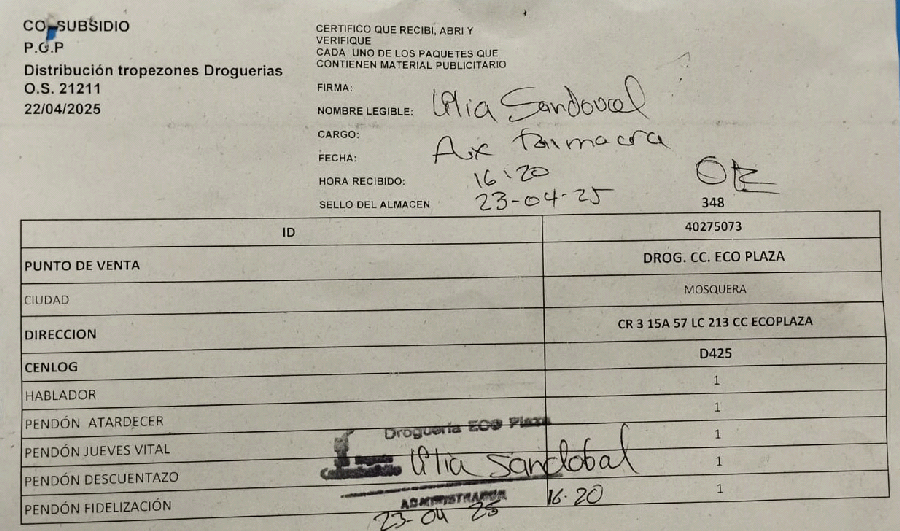 CO SUBSIDIO
P.G.P
Distribución tropezones Droguerias
O.S. 21211
22/04/2025
CERTIFICO QUE RECIBI, ABRI Y
VERIFIQUE
CADA UNO DE LOS PAQUETES QUE
CONTIENEN MATERIAL PUBLICITARIO
FIRMA:
NOMBRE LEGIBLE: Lilia Sandoval
CARGO: Aux Farmacia
FECHA:
HORA RECIBIDO: 16:20
SELLO DEL ALMACEN 23-04-25
OK
348
ID 40275073
PUNTO DE VENTA DROG. CC. ECO PLAZA
CIUDAD MOSQUERA
DIRECCION CR 3 15A 57 LC 213 CC ECOPLAZA
CENLOG D425
HABLADOR 1
PENDÓN ATARDECER 1
PENDÓN JUEVES VITAL 1
PENDÓN DESCUENTAZO 1
PENDÓN FIDELIZACIÓN 1
Droguería ECO Plaza
Lilia Sandobal
ADMINISTRADOR
23-04 25 16.20